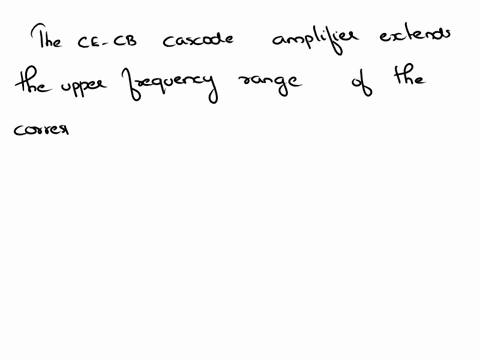 The CE-CB cascode amplifier extends
the upper frequency range of the
corres